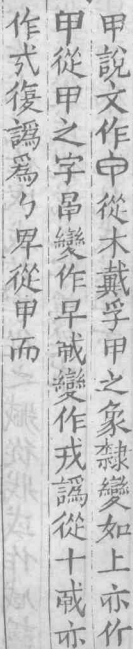 甲說文作𠇚從木戴孚甲之象隸變如上亦作
甲從甲之字𣅊變作早戝變作戎譌從十戝亦
作式復譌爲勹卑從甲而